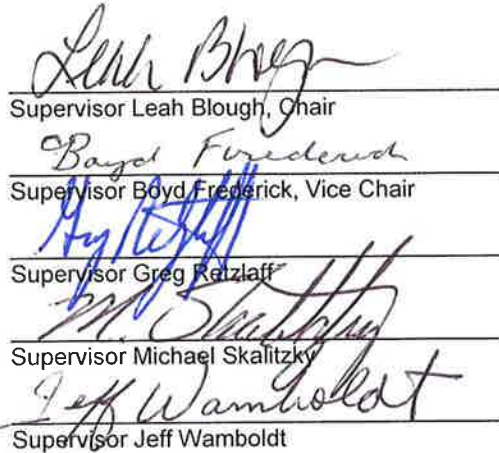 Leah Blough
Supervisor Leah Blough, Chair
Boyd Frederick
Supervisor Boyd Frederick, Vice Chair
Greg Retzlaff
Supervisor Greg Retzlaff
M. Skalitzky
Supervisor Michael Skalitzky
Jeff Wamboldt
Supervisor Jeff Wamboldt